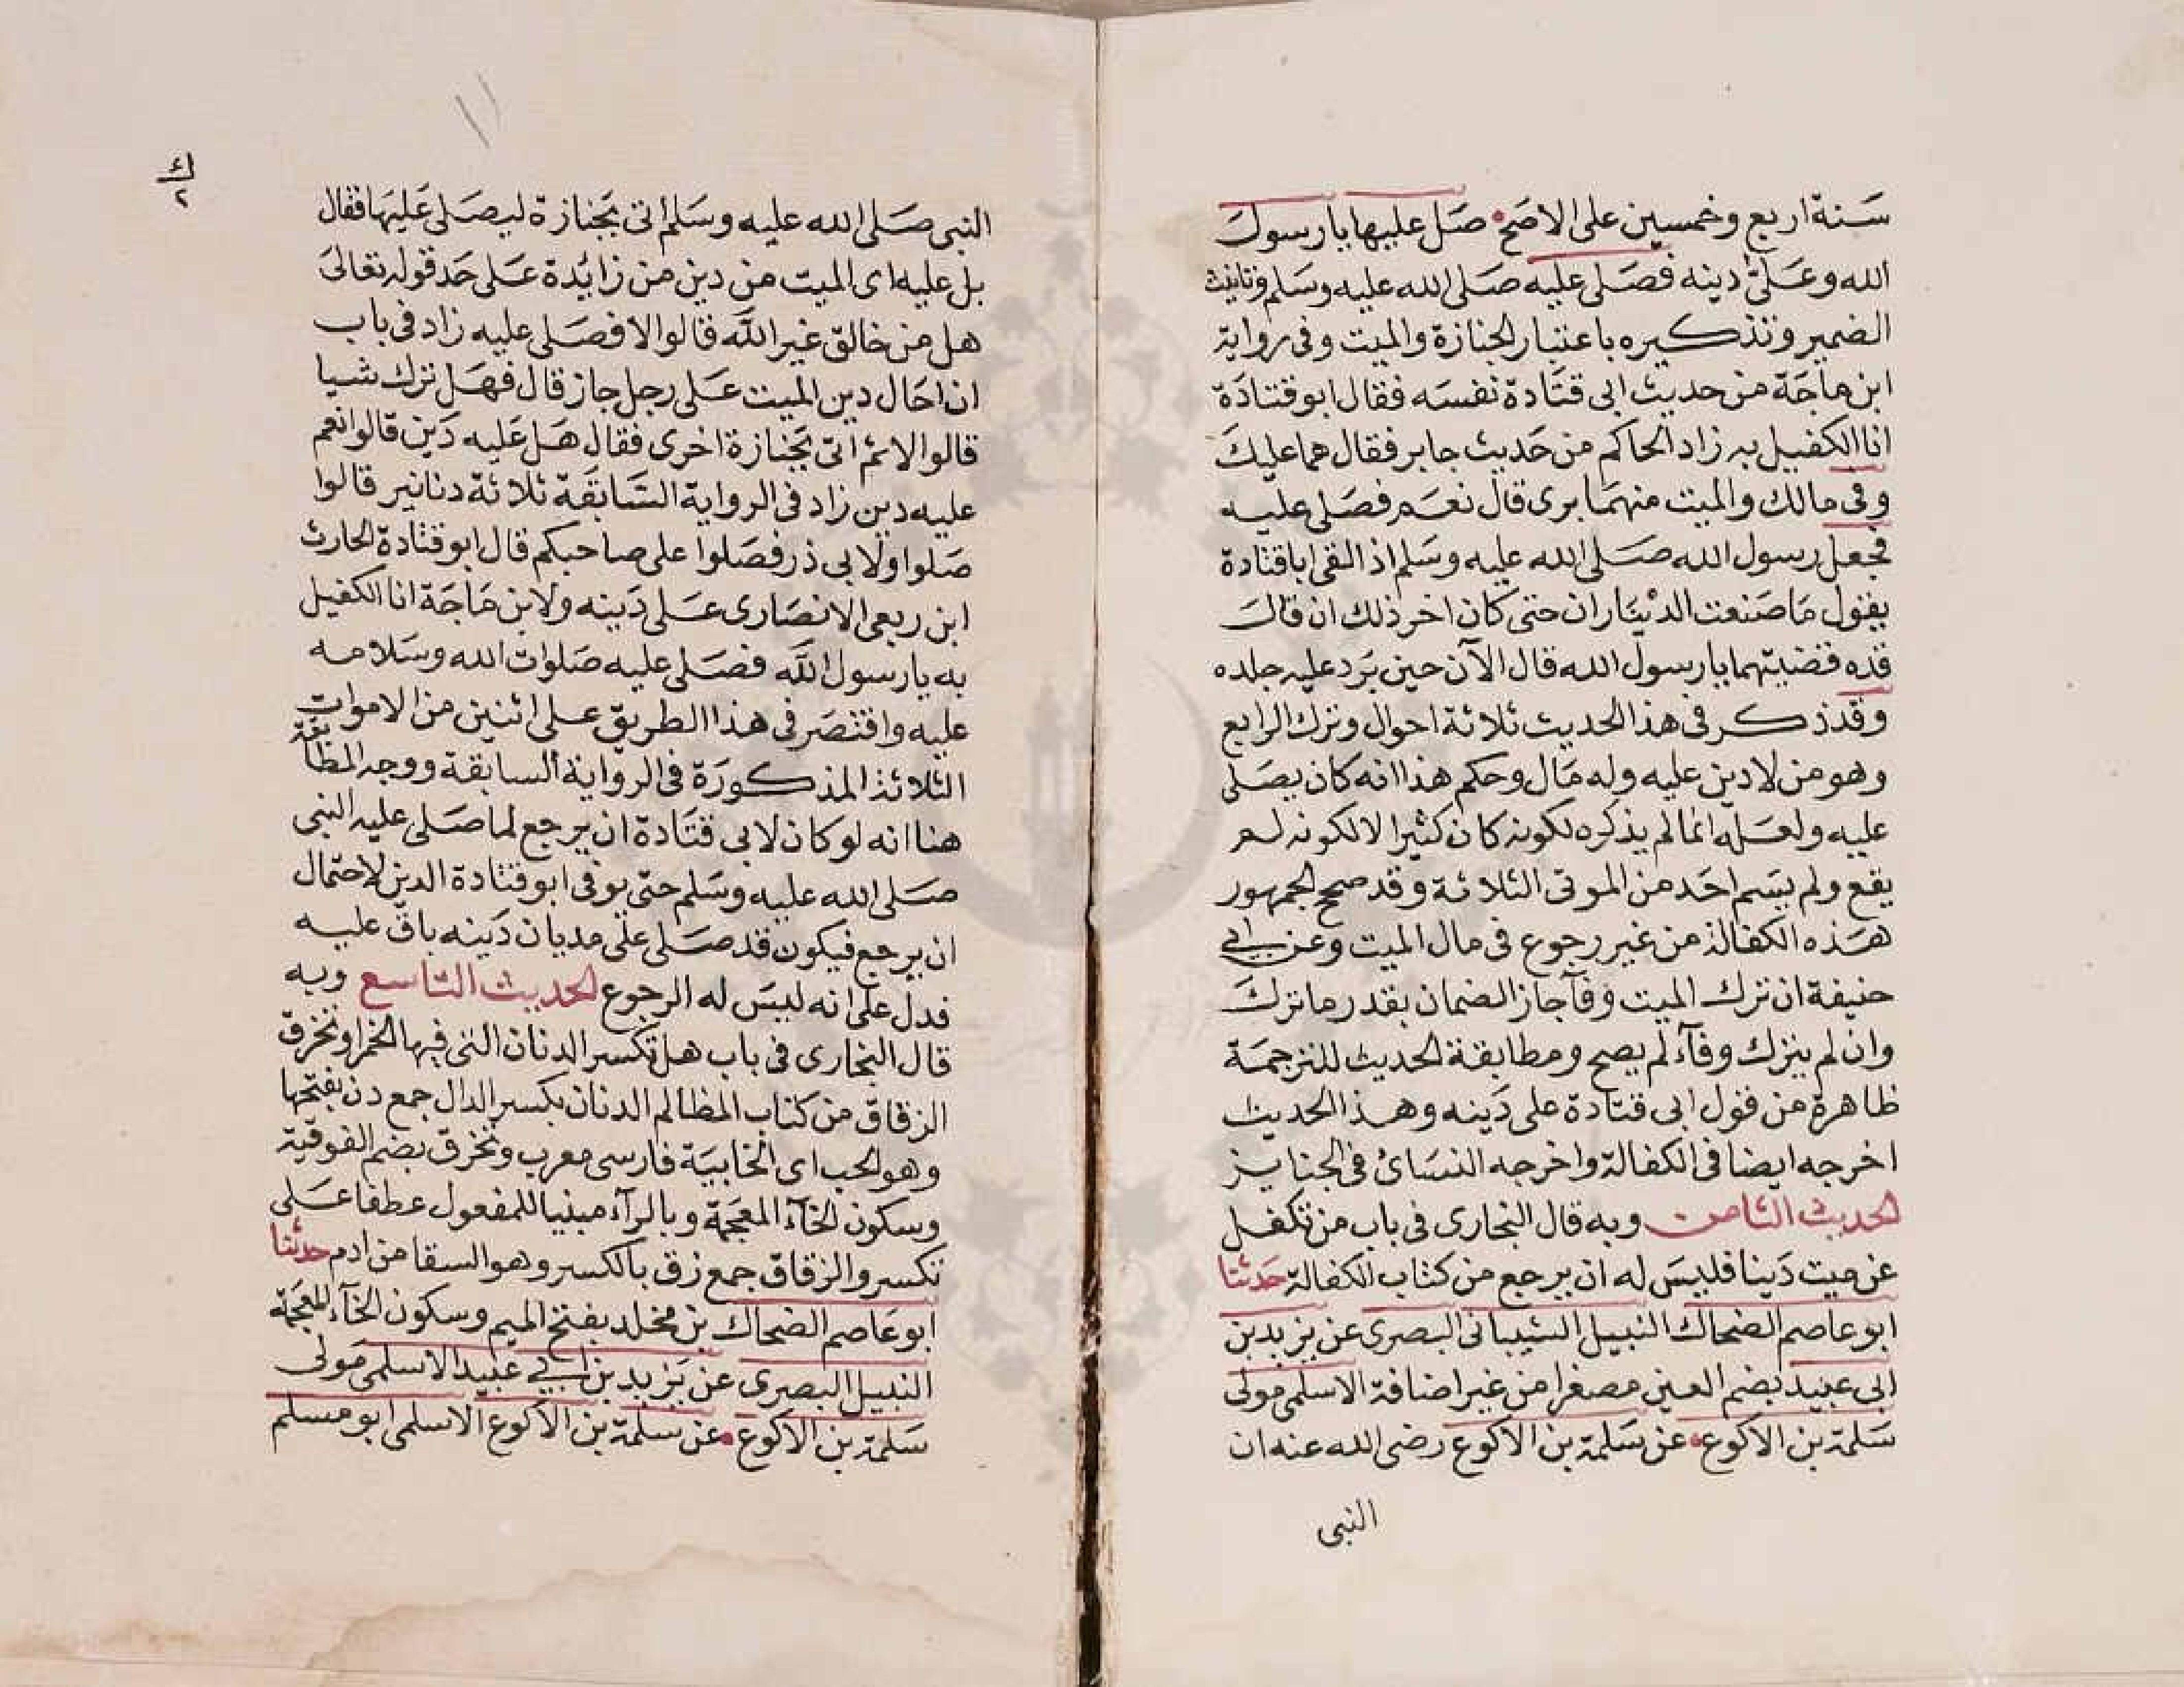 سنة اربع وخمسين على الاصح صل عليها يا رسول
الله وعلي دينه فصلى عليه صلى الله عليه وسلم وتانيث
الضمير وتذكيره باعتبار الجنازة والميت وفي رواية
ابن ماجة من حديث ابى قتادة نفسه فقال ابو قتادة
انا الكفيل به زاد الحاكم من حديث جابر فقال هما عليك
وفي مالك والميت منهما برى قال نعم فصلى عليه
فجعل رسول الله صلى الله عليه وسلم اذ القى ابا قتادة
يقول ما صنعت الديناران حتى كان اخر ذلك ان قال
قده قضيتهما يا رسول الله قال الآن حين برد عليه جلده
وقد ذكر في هذا الحديث ثلاثة احوال وترك الرابع
وهو من لا دين عليه وله مال وحكم هذا انه كان يصلى
عليه ولعله انما لم يذكره لكونه كان كثيرا لا لكونه لم
يقع ولم يسم احد من الموتى الثلاثة وقد صحح الجمهور
هذه الكفالة من غير رجوع في مال الميت وعن ابي
حنيفة ان ترك الميت وفآ جاز الضمان بقدر ما ترك
وان لم يترك وفآء لم يصح ومطابقة الحديث للترجمة
ظاهرة من قول ابى قتادة على دينه وهذا الحديث
اخرجه ايضا في الكفالة واخرجه النسائ في الجنايز
الحديث الثامن وبه قال البخارى في باب من تكفل
عن ميت دينا فليس له ان يرجع من كتاب الكفالة حدثنا
ابو عاصم الضحاك النبيل الشيبانى البصرى عن يزيد بن
ابى عبيد بضم العين مصغرا من غير اضافة الاسلمى مولى
سلمة بن الاكوع عن سلمة بن الاكوع رضى الله عنه ان
النبى
ك
٢
١١
النبى صلى الله عليه وسلم اتى بجنازة ليصلى عليها فقال
بل عليه اى الميت من دين من زايدة على حد قوله تعالى
هل من خالق غير الله قالوا لا فصلى عليه زاد في باب
ان احال دين الميت على رجل جاز قال فهل ترك شيا
قالوا لا ثم اتى بجنازة اخرى فقال هل عليه دين قالوا نعم
عليه دين زاد في الرواية السابقة ثلاثة دنانير قالوا
صلوا ولابى ذر فصلوا على صاحبكم قال ابو قتادة الحارث
ابن ربعى الانصارى على دينه ولابن ماجة انا الكفيل
به يا رسول الله فصلى عليه صلوات الله وسلامه
عليه واقتصر في هذا الطريق على اثنين من الاموات
الثلاثة المذكورة في الرواية السابقة ووجه المطابقة
هنا انه لو كان لابى قتادة ان يرجع لما صلى عليه النبى
صلى الله عليه وسلم حتى يوفى ابو قتادة الدين لاحتمال
ان يرجع فيكون قد صلى على مديان دينه باق عليه
فدل على انه ليس له الرجوع الحديث التاسع وبه
قال البخارى في باب هل تكسر الدنان التى فيها الخمر او تخرق
الزقاق من كتاب المظالم الدنان بكسر الدال جمع دن بفتحها
وهو الحب اى الخابية فارسى معرب وتخرق بضم الفوقية
وسكون الخآء المعجمة وبالرآء مبنيا للمفعول عطفا على
تكسر والزقاق جمع زق بالكسر وهو السقا من ادم حدثنا
ابو عاصم الضحاك بن مخلد بفتح الميم وسكون الخآء المعجمة
النبيل البصرى عن يزيد بن ابي عبيد الاسلمى مولى
سلمة بن الاكوع عن سلمة بن الاكوع الاسلمى ابو مسلم